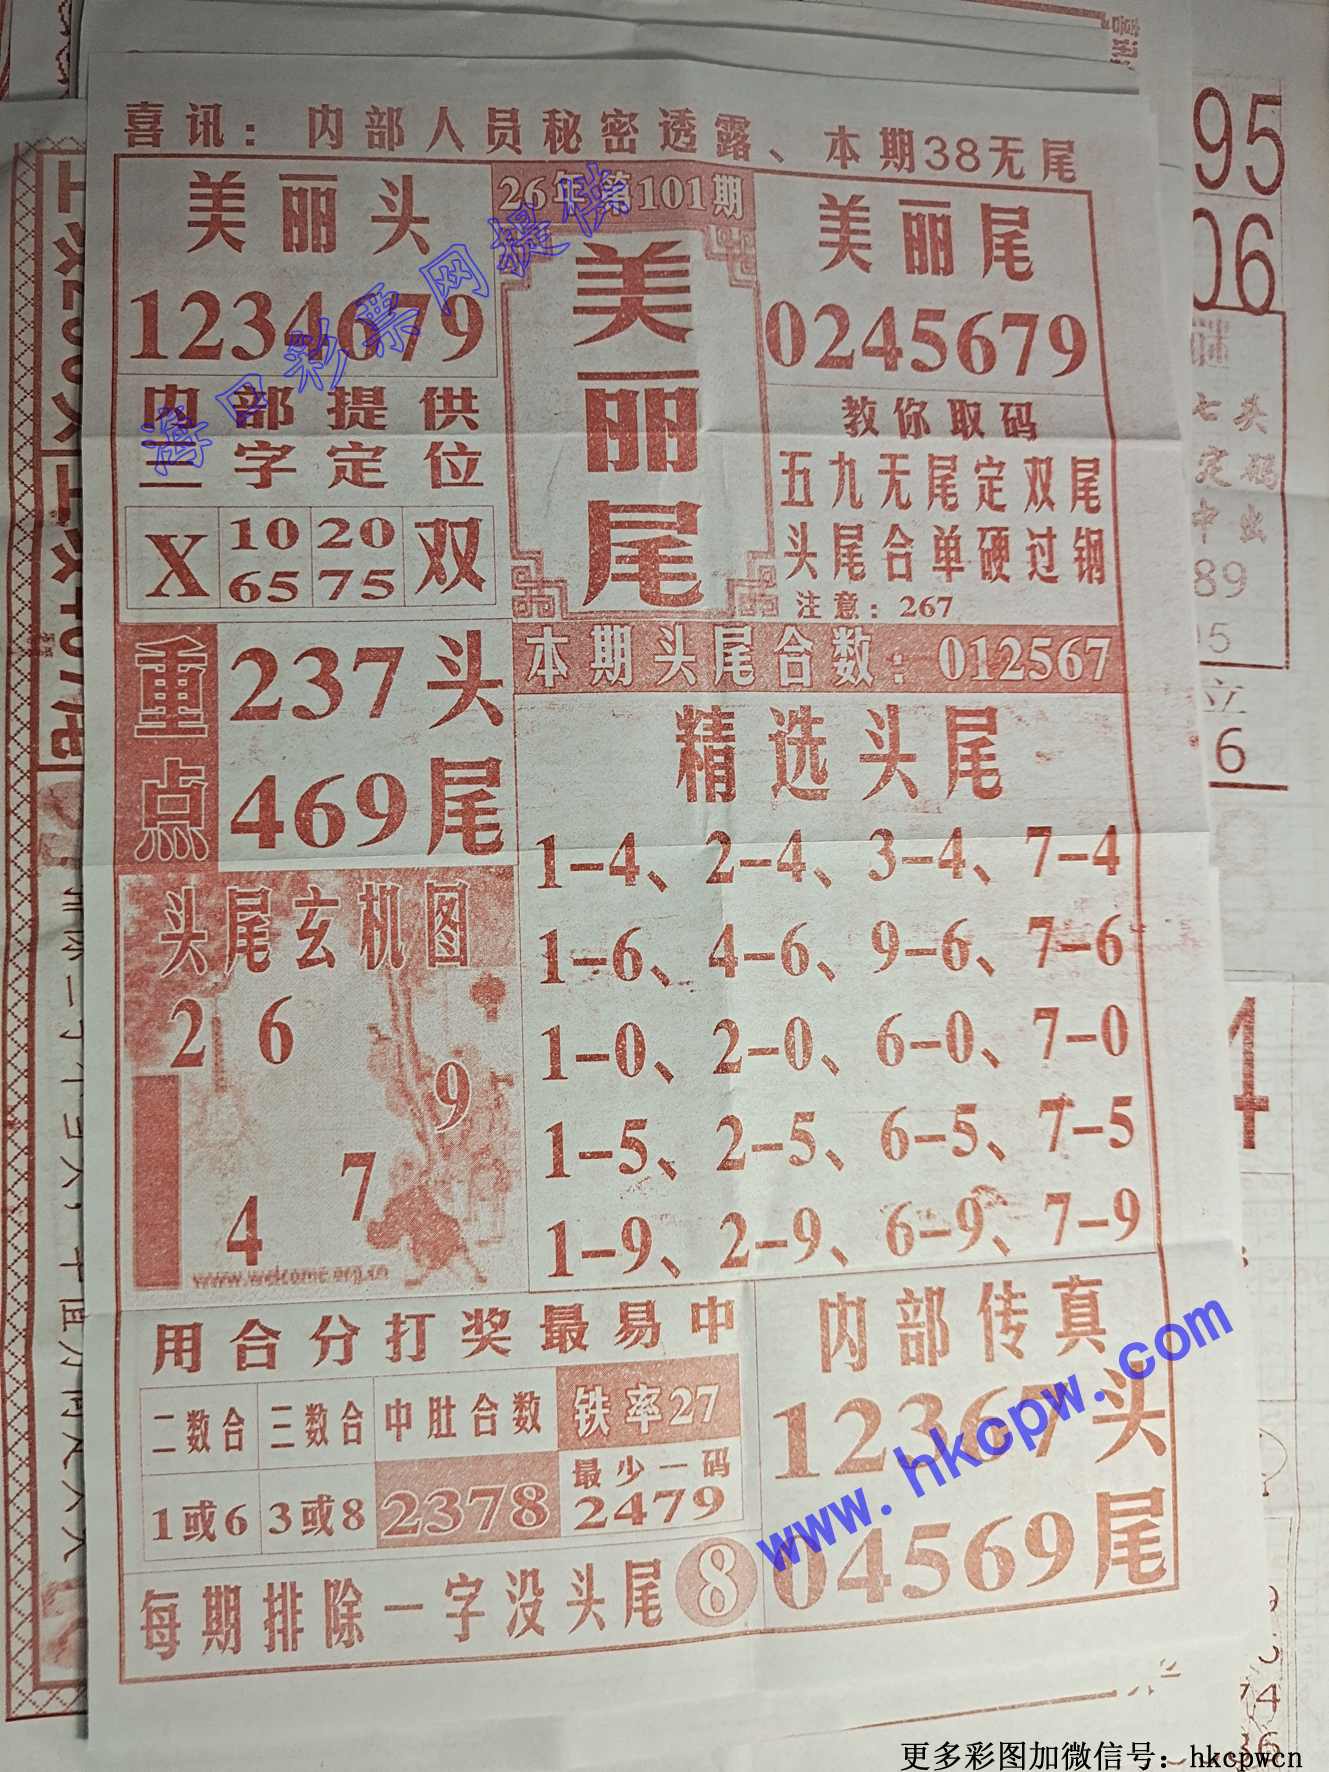 喜讯：内部人员秘密透露、本期38无尾
美丽头
1234679
26年第101期
美丽尾
美丽尾
0245679
内部提供
三字定位
X 10 20 双
65 75
教你取码
五九无尾定双尾
头尾合单硬过钢
注意：267
重点
237头
469尾
本期头尾合数：012567
精选头尾
1-4、2-4、3-4、7-4
1-6、4-6、9-6、7-6
1-0、2-0、6-0、7-0
1-5、2-5、6-5、7-5
1-9、2-9、6-9、7-9
头尾玄机图
2 6
9
7
4
www.welcome.org.cn
用合分打奖最易中
二数合 三数合 中肚合数 铁率27
1或6 3或8 2378 最少一码
2479
每期排除一字没头尾 8
内部传真
12367头
04569尾
海口彩票网提供
www.hkcpw.com
更多彩图加微信号：hkcpwcn
95
06
谜
七头
定码
中出
89
立
6